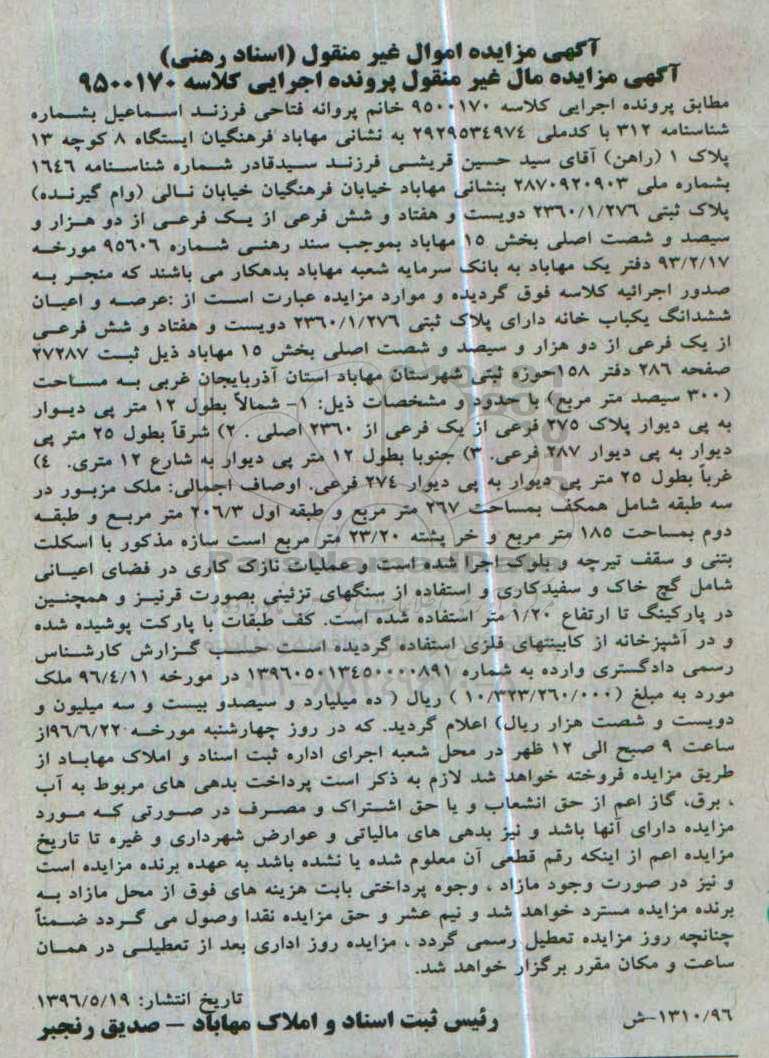 آگهی مزایده اموال غیر منقول (اسناد رهنی)
آگهی مزایده مال غیر منقول پرونده اجرایی کلاسه ۹۵۰۰۱۷۰
مطابق پرونده اجرایی کلاسه ۹۵۰۰۱۷۰ خانم پروانه فتاحی فرزند اسماعیل بشماره
شناسنامه ۳۱۲ با کدملی ۲۹۲۹۵۳۴۹۷۴ به نشانی مهاباد فرهنگیان ایستگاه ۸ کوچه ۱۳
پلاک ۱ (راهن) آقای سید حسین قریشی فرزند سیدقادر شماره شناسنامه ۱۶۴۶
بشماره ملی ۲۸۷۰۹۲۰۹۰۳ بنشانی مهاباد خیابان فرهنگیان خیابان نالی (وام گیرنده)
پلاک ثبتی ۲۳۶۰/۱/۲۷۶ دویست و هفتاد و شش فرعی از یک فرعی از دو هزار و
سیصد و شصت اصلی بخش ۱۵ مهاباد بموجب سند رهنی شماره ۹۵۶۰۶ مورخه
۹۳/۲/۱۷ دفتر یک مهاباد به بانک سرمایه شعبه مهاباد بدهکار می باشند که منجر به
صدور اجرائیه کلاسه فوق گردیده و موارد مزایده عبارت است از :عرصه و اعیان
ششدانگ یکباب خانه دارای پلاک ثبتی ۲۳۶۰/۱/۲۷۶ دویست و هفتاد و شش فرعی
از یک فرعی از دو هزار و سیصد و شصت اصلی بخش ۱۵ مهاباد ذیل ثبت ۲۷۲۸۷
صفحه ۲۸۶ دفتر ۱۵۸حوزه ثبتی شهرستان مهاباد استان آذربایجان غربی به مساحت
(۳۰۰ سیصد متر مربع) با حدود و مشخصات ذیل: ۱- شمالاً بطول ۱۲ متر پی دیوار
به پی دیوار پلاک ۲۷۵ فرعی از یک فرعی از ۲۳۶۰ اصلی . ۲) شرقاً بطول ۲۵ متر پی
دیوار به پی دیوار ۲۸۷ فرعی. ۳) جنوبا بطول ۱۲ متر پی دیوار به شارع ۱۲ متری. ۴)
غرباً بطول ۲۵ متر پی دیوار به پی دیوار ۲۷۴ فرعی. اوصاف اجمالی: ملک مزبور در
سه طبقه شامل همکف بمساحت ۲۶۷ متر مربع و طبقه اول ۲۰۶/۳ متر مربع و طبقه
دوم بمساحت ۱۸۵ متر مربع و خر پشته ۲۳/۲۰ متر مربع است سازه مذکور با اسکلت
بتنی و سقف تیرچه و بلوک اجرا شده است و عملیات نازک کاری در فضای اعیانی
شامل گچ خاک و سفیدکاری و استفاده از سنگهای تزئینی بصورت قرنیز و همچنین
در پارکینگ تا ارتفاع ۱/۲۰ متر استفاده شده است. کف طبقات با پارکت پوشیده شده
و در آشپزخانه از کابینتهای فلزی استفاده گردیده است حسب گزارش کارشناس
رسمی دادگستری وارده به شماره ۱۳۹۶۰۵۰۱۳۴۵۰۰۰۰۸۹۱ در مورخه ۹۶/۴/۱۱ ملک
مورد به مبلغ (۱۰/۳۲۳/۲۶۰/۰۰۰ ) ریال ( ده میلیارد و سیصدو بیست و سه میلیون و
دویست و شصت هزار ریال) اعلام گردید. که در روز چهارشنبه مورخه ۹۶/۶/۲۲از
ساعت ۹ صبح الی ۱۲ ظهر در محل شعبه اجرای اداره ثبت اسناد و املاک مهاباد از
طریق مزایده فروخته خواهد شد لازم به ذکر است پرداخت بدهی های مربوط به آب
، برق، گاز اعم از حق انشعاب و یا حق اشتراک و مصرف در صورتی که مورد
مزایده دارای آنها باشد و نیز بدهی های مالیاتی و عوارض شهرداری و غیره تا تاریخ
مزایده اعم از اینکه رقم قطعی آن معلوم شده یا نشده باشد به عهده برنده مزایده است
و نیز در صورت وجود مازاد ، وجوه پرداختی بابت هزینه های فوق از محل مازاد به
برنده مزایده مسترد خواهد شد و نیم عشر و حق مزایده نقدا وصول می گردد ضمناً
چنانچه روز مزایده تعطیل رسمی گردد ، مزایده روز اداری بعد از تعطیلی در همان
ساعت و مکان مقرر برگزار خواهد شد.
تاریخ انتشار: ۱۳۹۶/۵/۱۹
۱۳۱۰/۹۶-ش
رئیس ثبت اسناد و املاک مهاباد – صدیق رنجبر